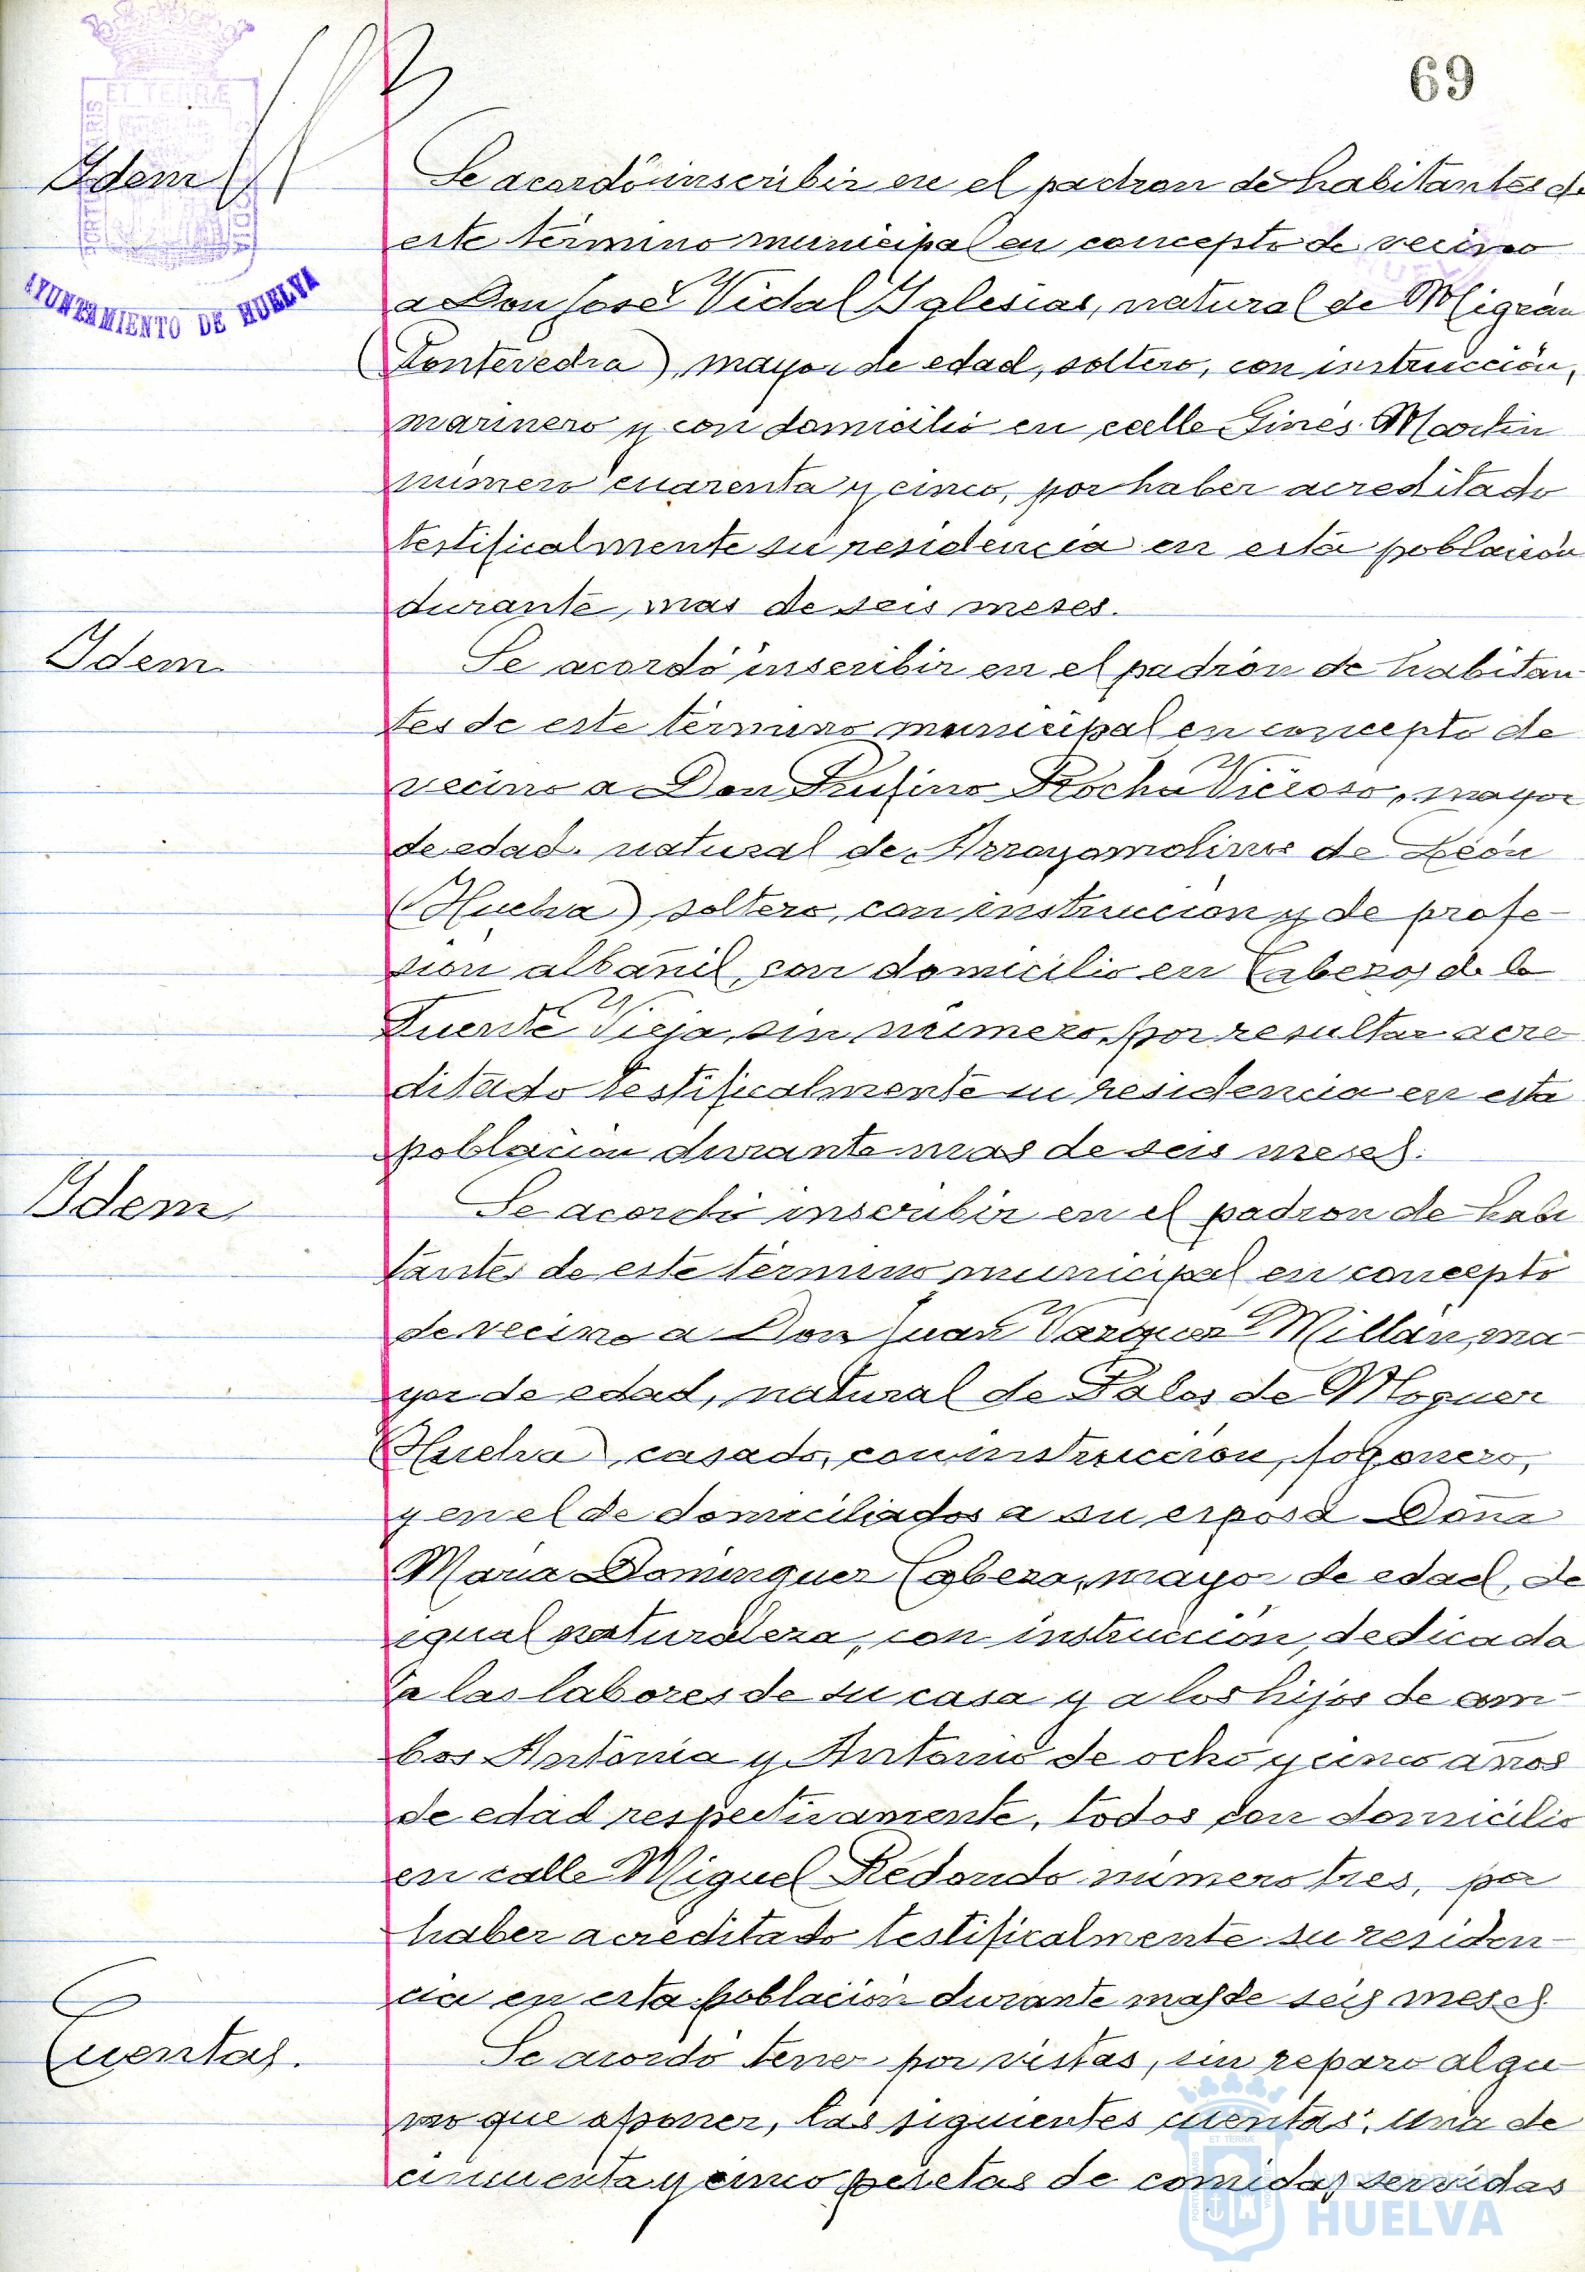 69
ET TERRÆ
AYUNTAMIENTO DE HUELVA
Idem
Se acordó inscribir en el padron de habitantes de
este término municipal en concepto de vecino
a Don José Vidal Yglesias, natural de Migran
(Pontevedra), mayor de edad, soltero, con instrucción,
marinero y con domicilio en calle Ginés Martin
número cuarenta y cinco, por haber acreditado
testificalmente su residencia en esta población
durante mas de seis meses.
Idem.
Se acordó inscribir en el padrón de habitan
tes de este término municipal en concepto de
vecino a Don Rufino Rocha Vicioso, mayor
de edad, natural de Arroyomolinos de León
(Huelva) soltero, con instrucción y de profe-
sion albañil, con domicilio en Cabezos de la
Fuente Vieja, sin número, por resultar acre
ditado testificalmente su residencia en esta
población durante mas de seis meses.
Idem
Se acordó inscribir en el padron de habi
tantes de este término municipal en concepto
de vecino a Don Juan Vazquez Millán, ma-
yor de edad, natural de Palos de Moguer
(Huelva), casado, con instrucción, fogonero,
y en el de domiciliados a su esposa Doña
Maria Dominguez Cabeza, mayor de edad, de
igual naturaleza, con instrucción, dedicada
a las labores de su casa y a los hijos de am-
bos Antonia y Antonio de ocho y cinco años
de edad respectivamente, todos con domicilio
en calle Miguel Redondo número tres, por
haber acreditado testificalmente su residen-
cia en esta población durante mas de seis meses
Cuentas.
Se acordó tener por vistas, sin reparo algu
no que oponer, las siguientes cuentas: Una de
cincuenta y cinco pesetas de comidas servidas
HUELVA